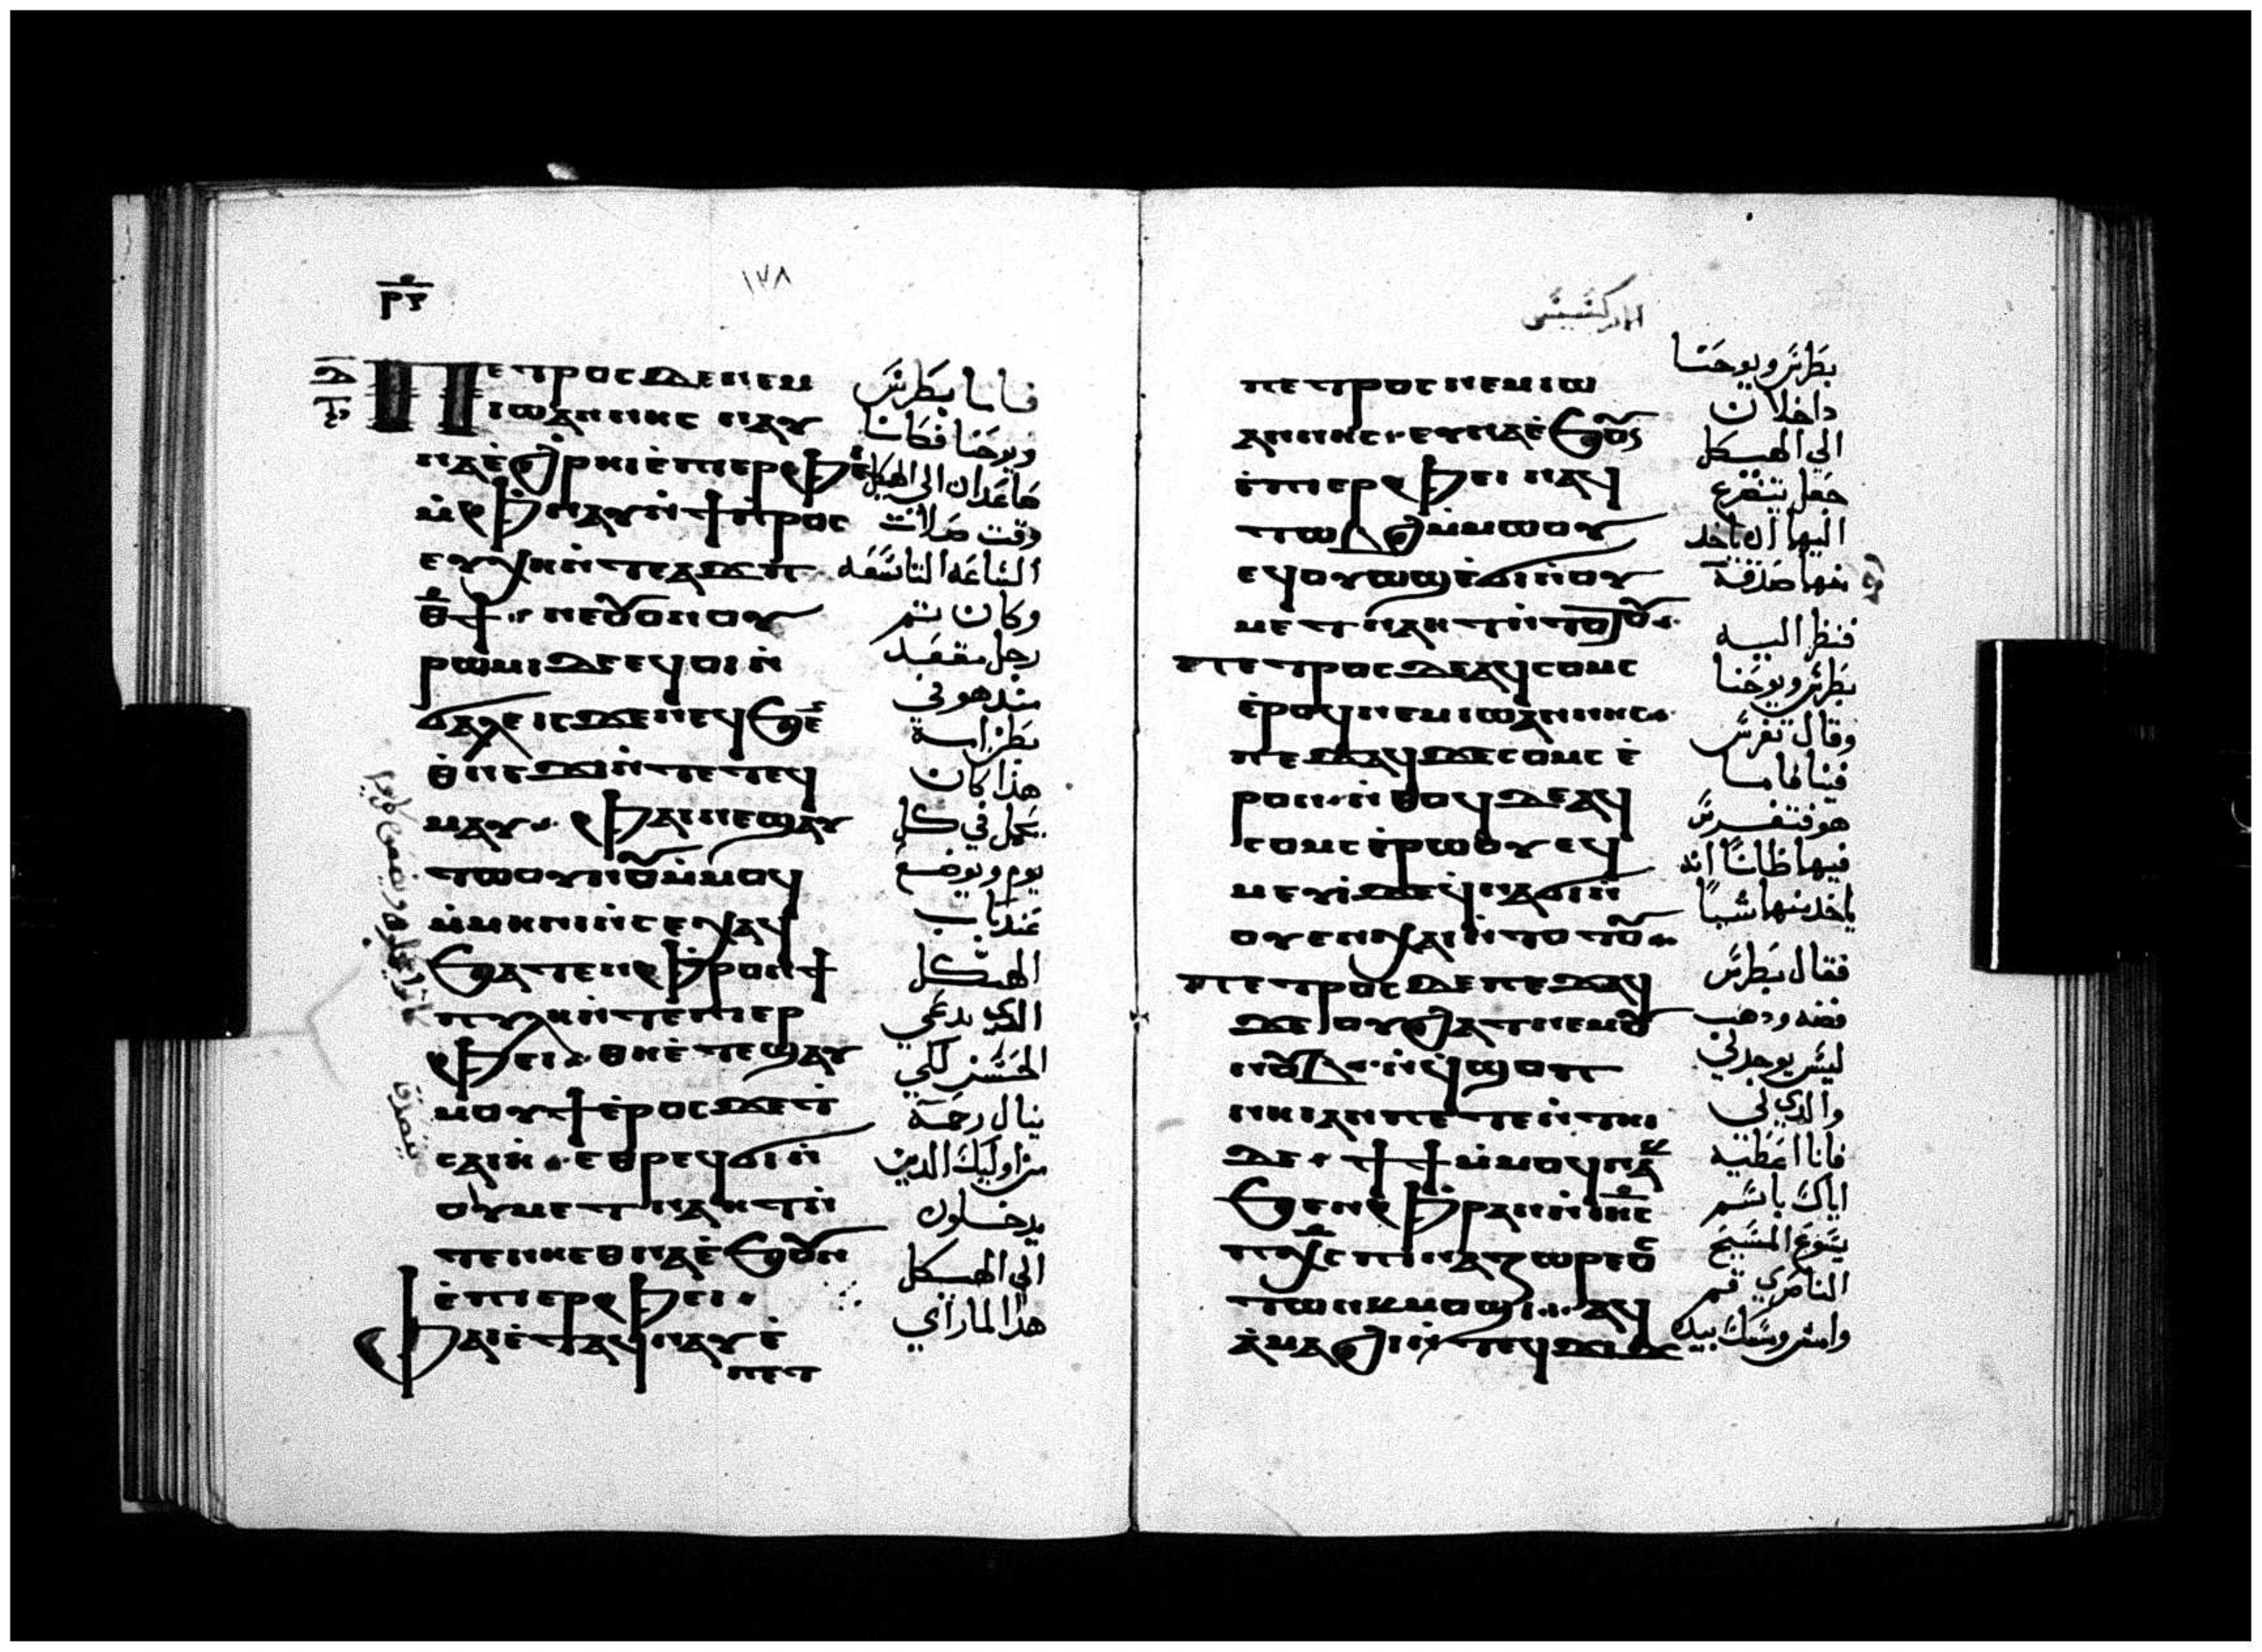 ⲣⲟ
١٧٨
Ⲡⲉⲧⲣⲟⲥ ⲇⲉ ⲛⲉⲙ
ⲓⲱⲁⲛⲛⲏⲥ ⲛⲁⲩ
ⲛⲁⲉ̀ϩⲣⲏⲓ ⲉ̀ⲡⲓⲉⲣⲫⲉ
ⲙ̀ⲫⲛⲁⲩ ⲛ̀ϯⲡⲣⲟⲥ
ⲉⲩⲭⲏ ⲛ̀ⲧⲉ ⲁϫⲡ
ⲑ̅ϯ ⲛⲉⲟⲩⲟⲛ ⲟⲩ
ⲣⲱⲙⲓ ⲇⲉ ⲉϥⲟⲓ ⲛ̀
ϭⲁⲗⲉ ⲓⲥϫⲉⲛ ⲉϥϧⲉ
ⲑ̀ⲛⲉϫⲓ ⲛ̀ⲧⲉ ⲧⲉϥ
ⲙⲁⲩ ⲫⲁⲓ ⲛⲉϣⲁⲩ
ⲧⲱⲟⲩⲛⲟⲩ ⲙ̀ⲙⲟϥ
ⲙ̀ⲙⲏⲛⲓ ⲛ̀ⲥⲉⲭⲁϥ
ϧⲁⲧⲉⲛ ⲫⲣⲟ ⲛϯ
ⲡⲩⲗⲏ ⲛ̀ⲧⲉ ⲡⲓⲉⲣ
ⲫⲉⲓ ⲑⲏⲉ̀ⲧⲉϣⲁⲩ
ⲙⲟⲩϯ ⲉ̀ⲣⲟⲥ ϫⲉ ϯ
ⲥⲁⲓⲏ̀ ⲉⲑⲣⲉϥϭⲓ ⲛ̀
ⲟⲩⲙⲉⲧⲛⲁⲏⲧ ⲛ̀
ⲧⲉⲛⲏⲉⲑⲛⲁⲉ̀ϧⲟⲩⲛ
ⲉ̀ⲡⲓⲉⲣⲫⲉⲓ
ⲫⲁⲓ ⲉ̀ⲧⲁϥⲛⲁⲩ ⲉ̀
ⲡⲉⲧ
فاما بطرس
ويوحنا فكانا
صاعدان الى الهيكل
وقت صلاة
الساعه التاسعه
وكان ثم
رجل مقعد
منذ هو في
بطن امه
هذا كان
يحمل في كل
يوم ويوضع
عند باب
الهيكل
الذي يدعي
الحسن لكي
ينال رحمة
من اوليك الدين
يدخلون
الى الهيكل
هدا لما راي
ⲡⲉⲧⲣⲟⲥ ⲛⲉⲙ ⲓⲱ
ⲁⲛⲛⲏⲥ ⲉⲩⲛⲁⲉ̀ϧⲟⲩⲛ
ⲉ̀ⲡⲓⲉⲣⲫⲉⲓ ⲛⲁϥ
ⲧⲱⲃϩ ⲙ̀ⲙⲱⲟⲩ
ⲉϥⲟⲩⲱϣ ⲉ̀ϭⲓ ⲛ̀ⲟⲩ
ⲙⲉⲧⲛⲁⲏⲧ ⲛ̀ⲧⲟⲧⲟⲩ
ⲡⲉⲧⲣⲟⲥ ⲇⲉ ⲁϥⲥⲟⲙⲥ
ⲉ̀ⲣⲟϥ ⲛⲉⲙ ⲓⲱⲁⲛⲛⲏⲥ
ⲡⲉϫⲁϥ ϫⲉ ⲥⲟⲙⲥ ⲉ̀
ⲣⲟⲛ ⲛ̀ⲑⲟϥ ⲇⲉ ⲁϥ
ⲥⲟⲙⲥ ⲉ̀ⲣⲱⲟⲩ ⲉϥ
ⲙⲉⲩⲓ̀ ϫⲉ ϥ̀ⲛⲁϭⲓ ⲛ̀
ⲟⲩⲉⲛⲭⲁⲓ ⲛ̀ⲧⲟⲧⲟⲩ
ⲡⲉⲧⲣⲟⲥ ⲇⲉ ⲡⲉϫⲁϥ
ϫⲉ ⲟⲩϩⲁⲧ ⲛⲉⲙ ⲟⲩ
ⲛⲟⲩⲃ ⲛ̀ϥ̀ϣⲟⲡ
ⲛⲏⲓ ⲁⲛ ⲡⲉⲧⲉⲛ̀ⲧⲏⲓ
ⲇⲉ ϯϯ ⲙ̀ⲙⲟϥ ⲛⲁⲕ
ϧⲉⲛ ⲫⲣⲁⲛ ⲛ̀ⲓⲏⲥ
ⲡⲭⲥ ⲡⲓⲛⲁⲍⲱⲣⲉⲟⲥ
ⲧⲱⲛⲕ ⲙⲟϣⲓ ⲁϥ
ⲁ̀ⲙⲁϩⲓ ⲛ̀ⲧⲉϥϫⲓϫ
بطرس ويوحنا
داخلان
الى الهيكل
جعل يتضرع
اليهما ان ياخد
منهما صدقة
فنظر اليه
بطرس ويوحنا
وقال تفرس
فينا فاما
هو فتفرس
فيهما ظانا انه
ياخد منهما شيا
فقال بطرس
فضه ودهب
ليس يوجد لي
والدي لي
فانا اعطيه
اياك باسم
يسوع المسيح
الناصري قم
وامش ومسك بيده